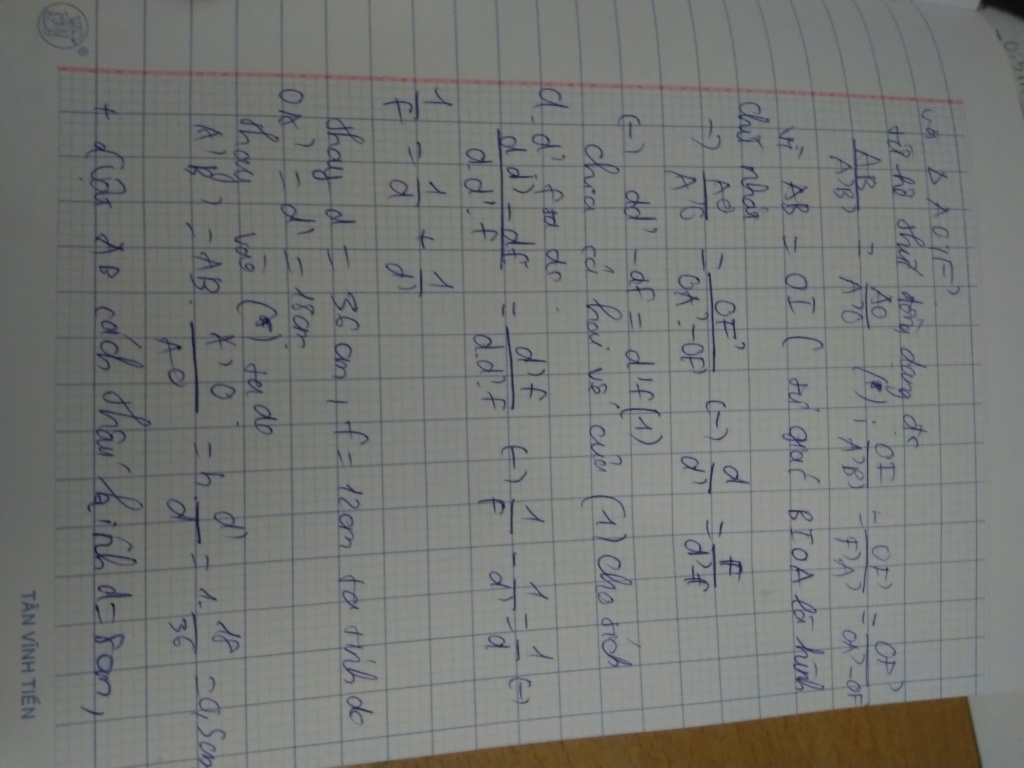 và Δ A'B'F'
từ hệ thức đồng dạng đc
AB/A'B' = AO/A'O (*) ; OI/A'B' = OF'/F'A' = OF'/OA'-OF'
vì AB = OI ( tứ giác BIOA là hình
chữ nhật
→) AO/A'O = OF'/OA'-OF' (-) d/d' = f/d'-f
(-) dd' - df = d'f (1)
chia cả hai vế của (1) cho tích
d.d'.f ta đc.
dd'-df/dd'.f = d'f/d.d'.f (-) 1/f - 1/d' = 1/d (-)
1/f = 1/d + 1/d'
thay d = 36 cm, f = 12cm ta tính đc
OA' = d' = 18cm
thay vào (*) ta đc
A'B' = AB. A'O/AO = h d'/d = 1. 18/36 = 0,5cm
+ Vật AB cách thấu kính d = 8cm,
TÂN VĨNH TIẾN